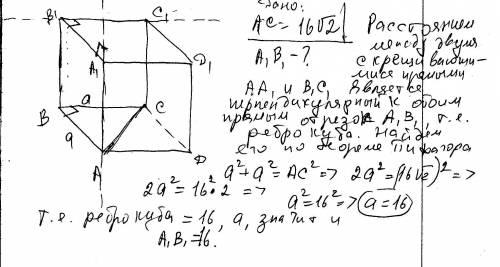 Дано:
AC = 16√2
A₁B₁ - ?
Расстоянием
между двумя
скрещивающи-
мися прямыми
AA₁ и B₁C₁ является
перпендикулярный к обоим
прямым отрезок A₁B₁, т.е.
ребро куба. Найдем
его по теореме Пифагора
a² + a² = AC² => 2a² = (16√2)² =>
2a² = 16² · 2 => a² = 16² => a = 16
т.е. ребро куба = 16, а, значит и
A₁B₁ = 16.
B₁ C₁
A₁ D₁
B a C
a
A D